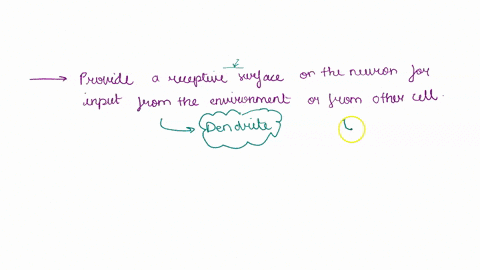 Provide a receptive surface on the neuron for
input from the environment or from other cell.
Dendrite